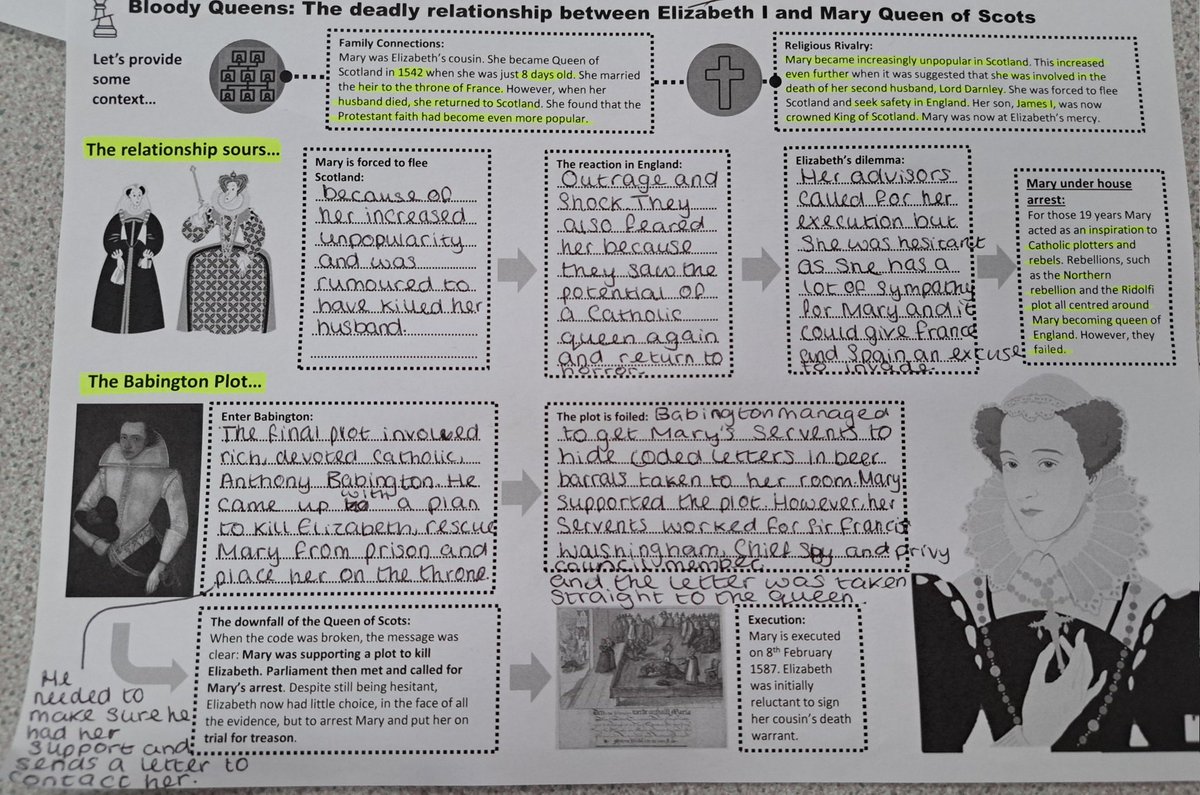 Bloody Queens: The deadly relationship between Elizabeth I and Mary Queen of Scots
Let's provide
some
context...
Family Connections:
Mary was Elizabeth's cousin. She became Queen of
Scotland in 1542 when she was just 8 days old. She married
the heir to the throne of France. However, when her
husband died, she returned to Scotland. She found that the
Protestant faith had become even more popular.
Religious Rivalry:
Mary became increasingly unpopular in Scotland. This increased
even further when it was suggested that she was involved in the
death of her second husband, Lord Darnley. She was forced to flee
Scotland and seek safety in England. Her son, James I, was now
crowned King of Scotland. Mary was now at Elizabeth's mercy.
The relationship sours...
Mary is forced to flee
Scotland:
because of
her increased
unpopularity
and was
rumoured to
have killed her
husband.
The reaction in England:
Outrage and
Shock. They
also feared
her because
they saw the
potential of
a Catholic
queen again
and return to
horror.
Elizabeth's dilemma:
Her advisors
called for her
execution but
She was hesitant
as she has a
lot of sympathy
for Mary and it
could give France
and Spain an excuse
to invade
Mary under house
arrest:
For those 19 years Mary
acted as an inspiration to
Catholic plotters and
rebels. Rebellions, such
as the Northern
rebellion and the Ridolfi
plot all centred around
Mary becoming queen of
England. However, they
failed.
The Babington Plot...
Enter Babington:
The final plot involved
rich, devoted Catholic,
Anthony Babington. He
came up with a plan
to kill Elizabeth, rescue
Mary from prison and
place her on the throne.
He
needed to
make sure he
had her
support and
sends a letter to
contact her.
The plot is foiled: Babington managed
to get Mary's servents to
hide coded letters in beer
barrals taken to her room. Mary
supported the plot. However, her
Servents worked for Sir Francis
Walshingham, Chief Spy and privy
council member
and the letter was taken
straight to the queen
The downfall of the Queen of Scots:
When the code was broken, the message was
clear: Mary was supporting a plot to kill
Elizabeth. Parliament then met and called for
Mary's arrest. Despite still being hesitant,
Elizabeth now had little choice, in the face of all
the evidence, but to arrest Mary and put her on
trial for treason.
Execution:
Mary is executed
on 8th February
1587. Elizabeth
was initially
reluctant to sign
her cousin's death
warrant.